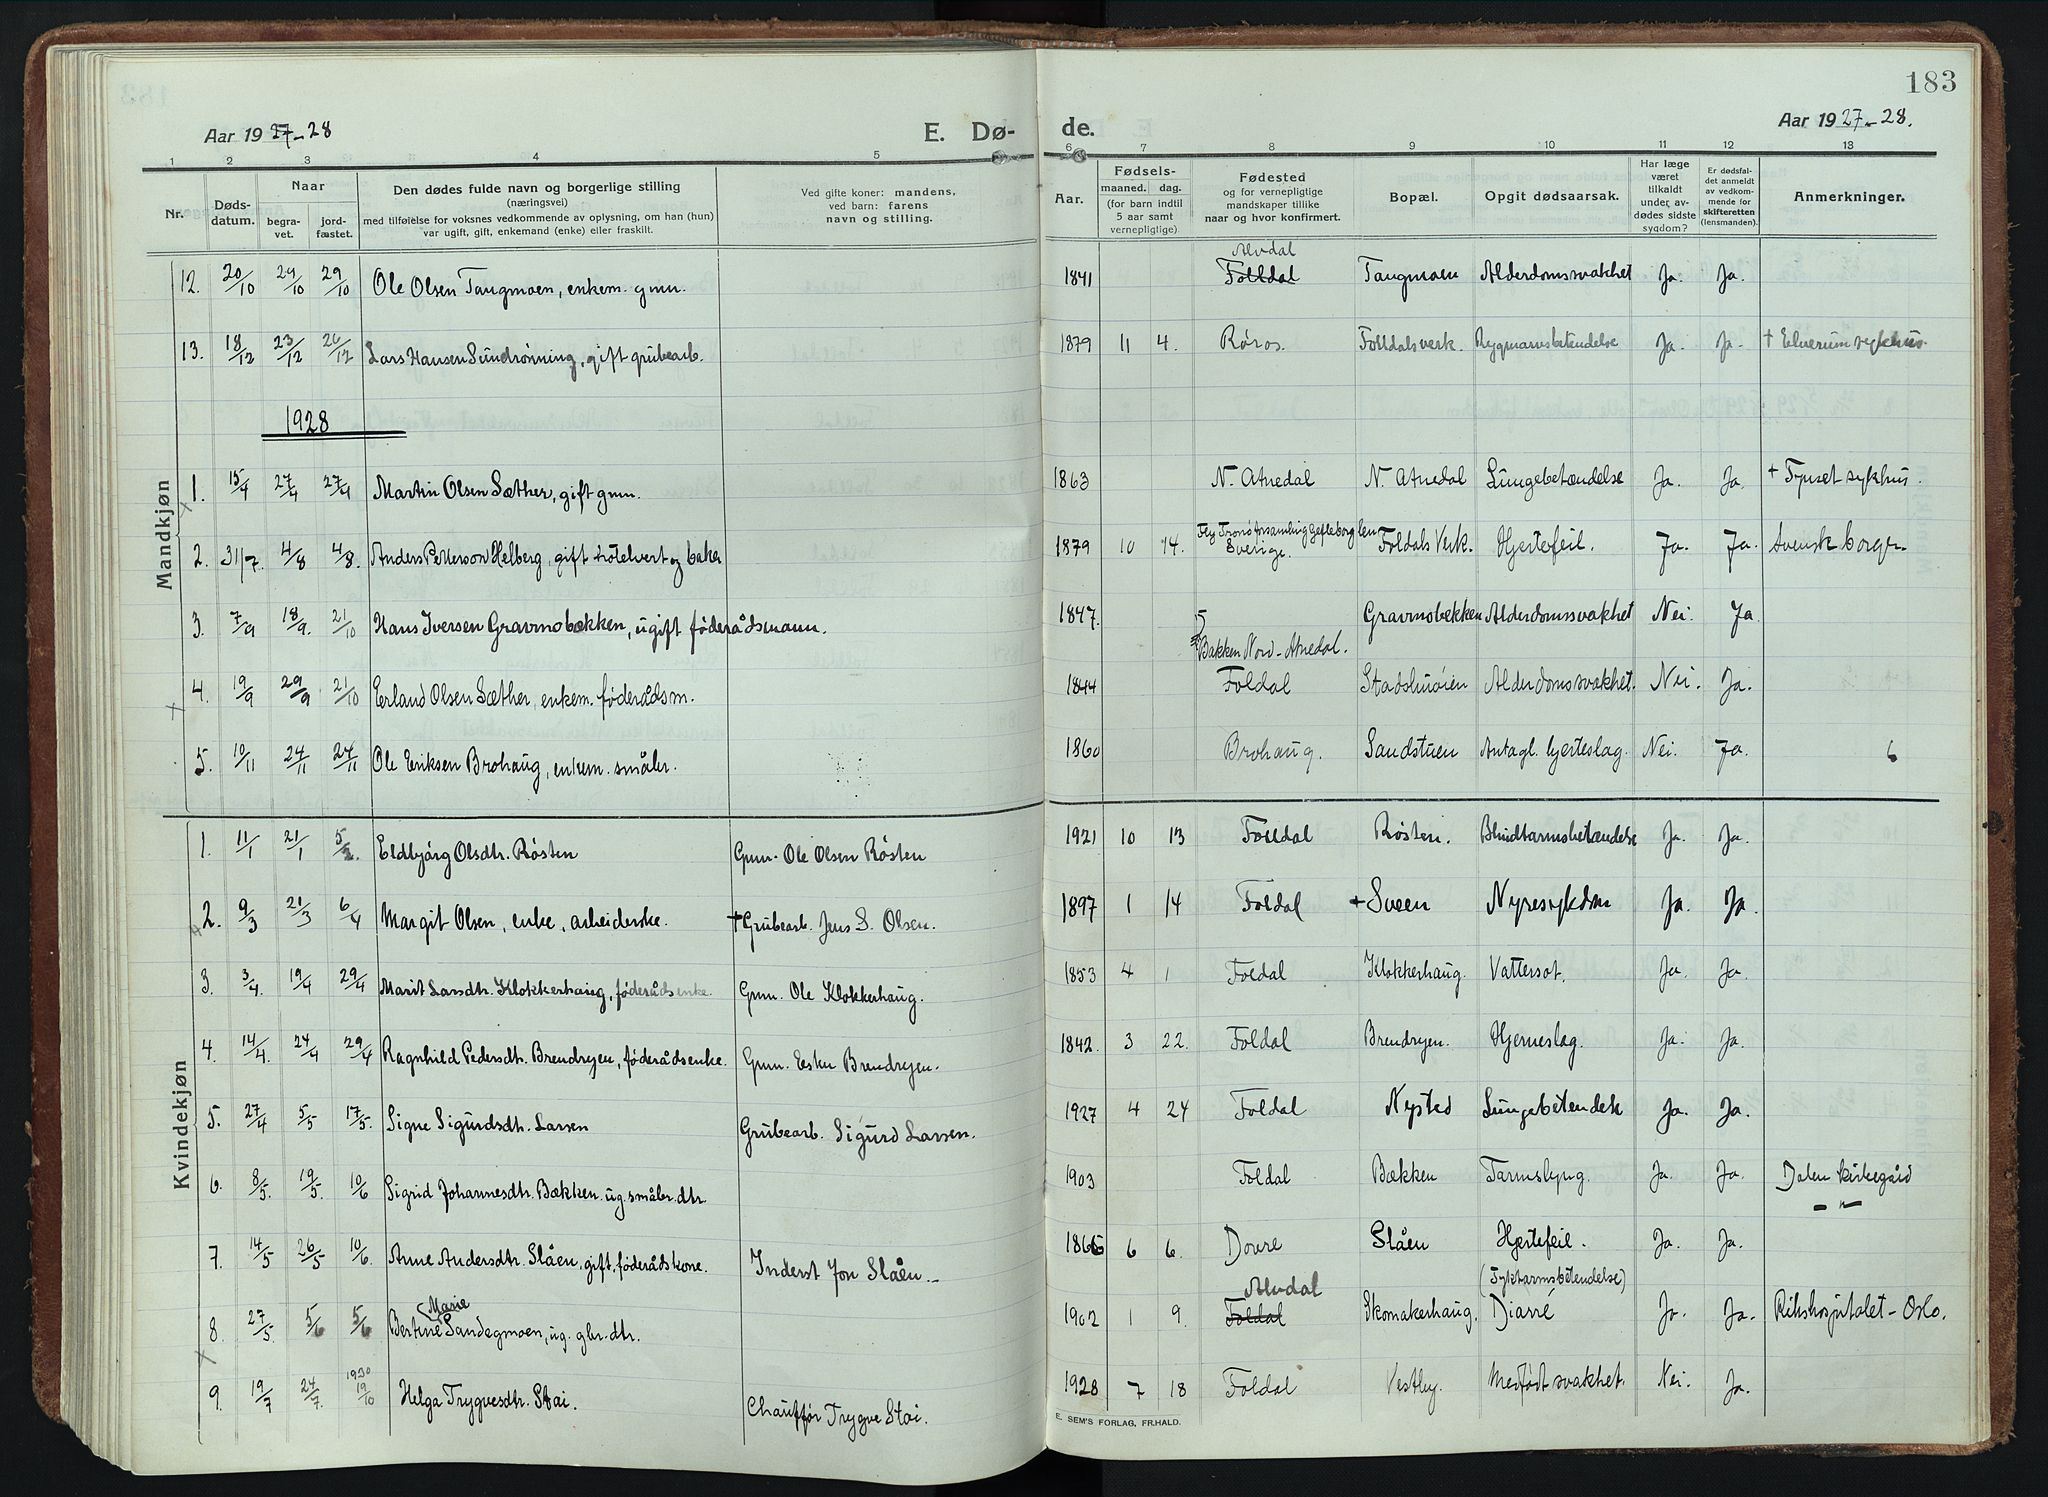 183
Aar 1927-28
E. Dø-
de.
Aar 1927-28.
1 2 3 4 5 6 7 8 9 10 11 12 13
Nr.
Døds-
datum.
Naar
begra-
vet.
jord-
fæstet.
Den dødes fulde navn og borgerlige stilling
(næringsvei)
med tilføielse for voksnes vedkommende av oplysning, om han (hun)
var ugift, gift, enkemand (enke) eller fraskilt.
Ved gifte koner: mandens,
ved barn: farens
navn og stilling.
Aar.
Fødsels-
maaned. dag.
(for barn indtil
5 aar samt
vernepligtige).
Fødested
og for vernepligtige
mandskaper tillike
naar og hvor konfirmert.
Bopæl.
Opgit dødsaarsak.
Har læge
været
tilkaldt
under av-
dødes sidste
sygdom?
Er dødsfal-
det anmeldt
av vedkom-
mende for
skifteretten
(lensmanden).
Anmerkninger.
Alvdal
12. 20/10 29/10 29/10 Ole Olsen Taugmoen, enkem. gmn. 1841 Folldal Taugmoen Alderdomssvakhet Ja. Ja.
13. 18/12 23/12 26/12 Lars Hansen Sundrønning, gift grubearb. 1879 11 4. Røros. Folldalsverk. Rygmarvsbetendelse Ja. Ja. † Elverum sykehus.
1928
Mandkjøn
1. 15/4 27/4 27/4 Martin Olsen Sæther, gift gmn. 1863 N. Atnedal N. Atnedal Lungebetændelse Ja. Ja. † Tynset sykhus.
2. 31/7. 4/8 4/8. Anders Petterson Helberg, gift hotelvert og baker 1879 10 14. Sverige. Foldals Verk. Hjertefeil. Ja. Ja. Svensk borger
3. 7/9 18/9. 21/10 Hans Iversen Gravnobækken, ugift føderådsmann. 1847. Gravnobækken Alderdomssvakhet Nei. Ja.
Bakken Nord-Atnedal.
4. 19/9 29/9 21/10 Erland Olsen Sæther, enkem. føderådsm. 1844 Foldal Alderdomssvakhet. Nei. Ja.
5. 10/11 24/11 24/11 Ole Eriksen Brohaug, enkem. småbr. 1860 Brohaug. Sandstuen Antagl. hjerteslag. Nei. Ja. 6
Kvindekjøn
1. 11/1 21/1 5/2. Eldbjørg Olsdtr. Røsten Gmn. Ole Olsen Røsten 1921 10 13 Folldal Røsten. Blindtarmsbetændelse Ja. Ja.
2. 9/3 21/3 6/4 Margit Olsen, enke, arbeiderske. † Grubearb. Jens S. Olsen. 1897 1 14 Foldal + Sveen Nyresykdom Ja. Ja.
3. 3/4. 19/4 29/4 Marit Larsdtr. Klokkerhaug, føderådsenke. Gmn. Ole Klokkerhaug. 1853 4 1 Foldal Klokkerhaug. Vattersot. Ja. Ja.
4. 14/4. 24/4 29/4 Ragnhild Pedersdtr. Brendryen, føderådsenke. Gmn. Esten Brendryen. 1842. 3 22. Foldal Brendryen. Hjerneslag. Ja. Ja.
5. 27/4 5/5 17/5. Signe Sigurdsdtr. Larsen Grubearb. Sigurd Larsen. 1927 4 24 Foldal Nysted Lungebetendelse Ja. Ja.
6. 8/5. 19/5. 10/6 Sigrid Johannesdtr. Bækken. ug. småbr. dtr. 1903 Foldal Bækken Tarmslyng. Ja. Ja. Dalen kirkegård
7. 14/5 26/5 10/6 Anne Andersdtr. Slåen, gift, føderådskone. Inderst Jon Slåen. 1866 6 6. Dovre Slåen Hjertefeil. Ja. Ja. – " –
Marie
Alvdal
(Tyktarmsbetendelse)
8. 27/5 5/6 5/6 Bertine Sandegmoen, ug. gbr. dtr. 1902 1 9. Foldal Skomakerhaug. Diarré Ja. Ja. Rikshospitalet - Oslo.
1930
9. 19/7 24/7. 19/10 Helga Trygvesdtr. Stai. Chauffør Trygve Stai. 1928 7 18 Foldal Vestby. Medfødt svakhet. Nei. Ja.
E. SEM'S FORLAG, FR.HALD.